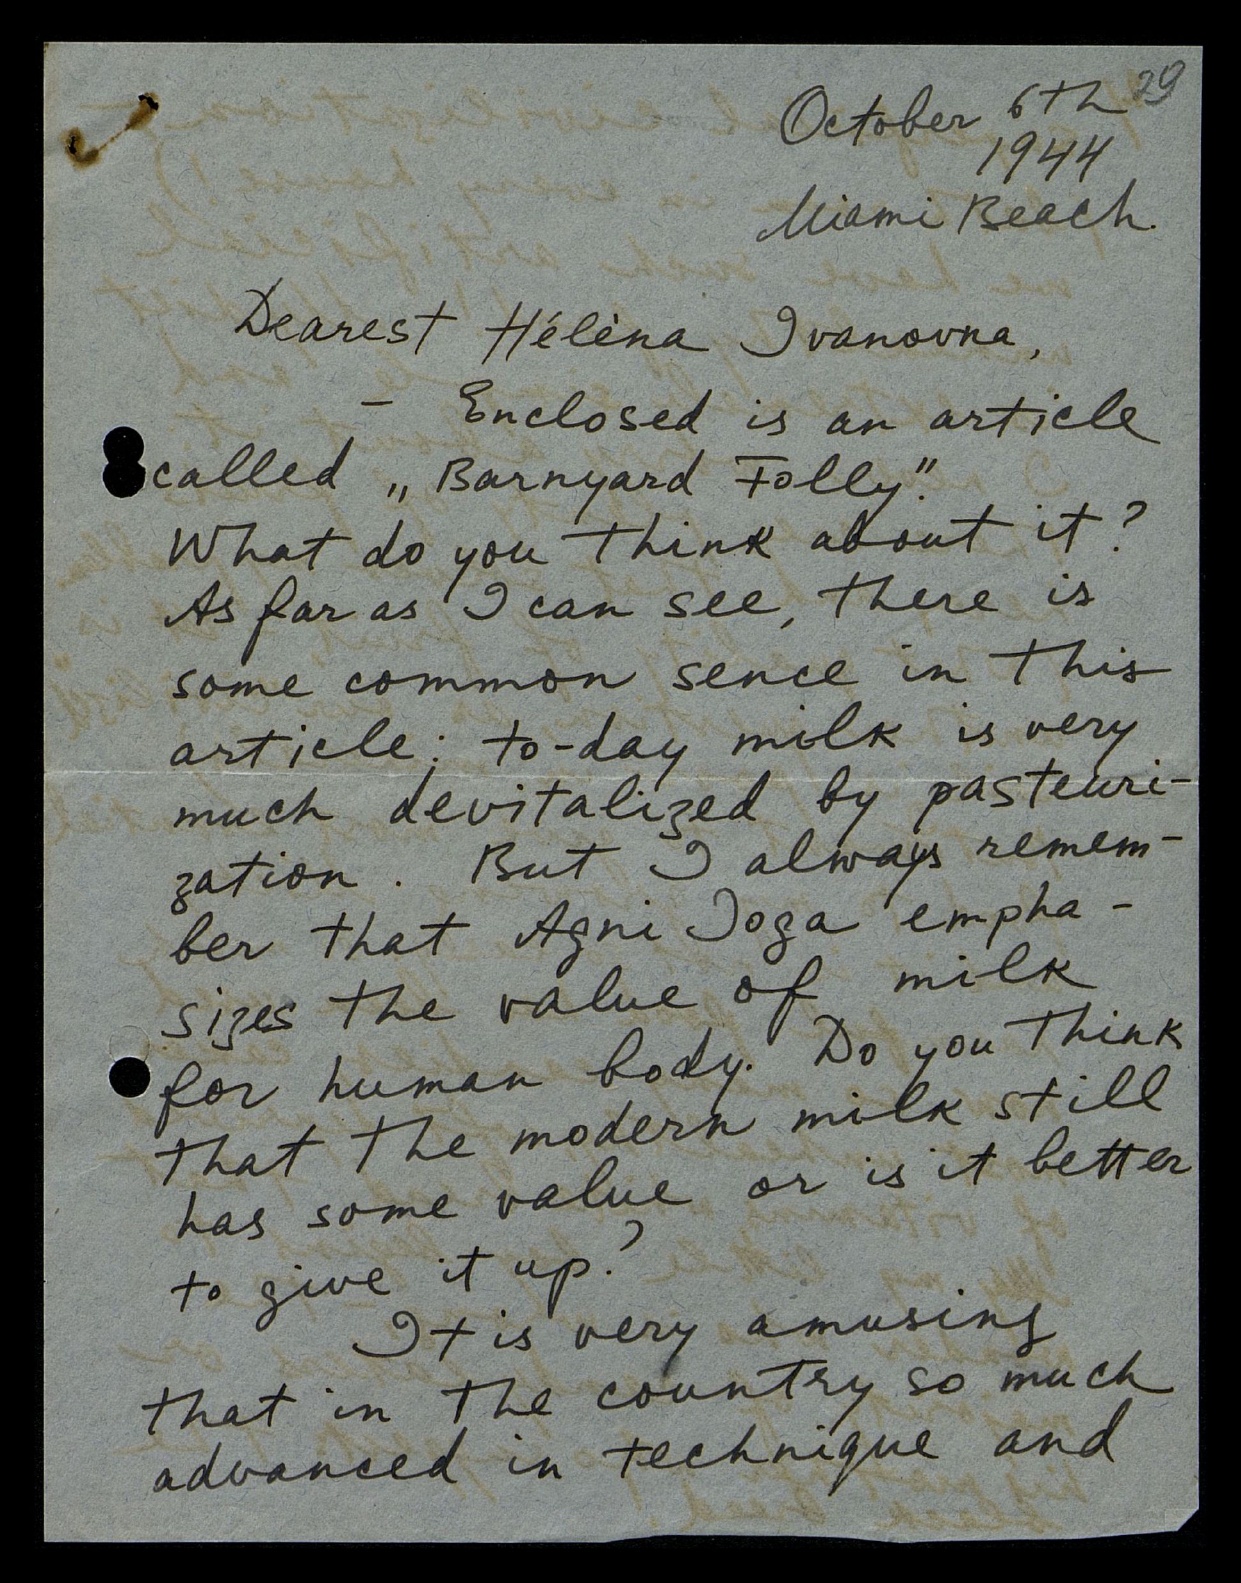 29
October 6th
1944
Miami Beach.
Dearest Hélèna Ivanovna,
– Enclosed is an article
called „Barnyard Folly".
What do you think about it?
As far as I can see, there is
some common sence in this
article: to-day milk is very
much devitalized by pasteuri-
zation. But I always remem-
ber that Agni Ioga empha-
sizes the value of milk
for human body. Do you think
that the modern milk still
has some value or is it better
to give it up?
It is very amusing
that in the country so much
advanced in technique and